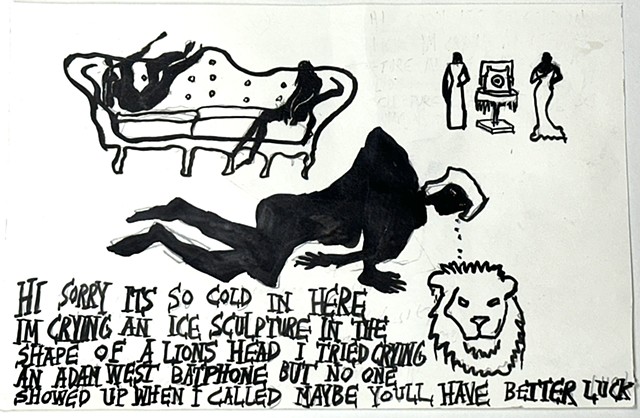 HI SORRY ITS SO COLD IN HERE
IM CRYING AN ICE SCULPTURE IN THE
SHAPE OF A LIONS HEAD I TRIED CRYING
AN ADAM WEST BATPHONE BUT NO ONE
SHOWED UP WHEN I CALLED MAYBE YOULL HAVE BETTER LUCK